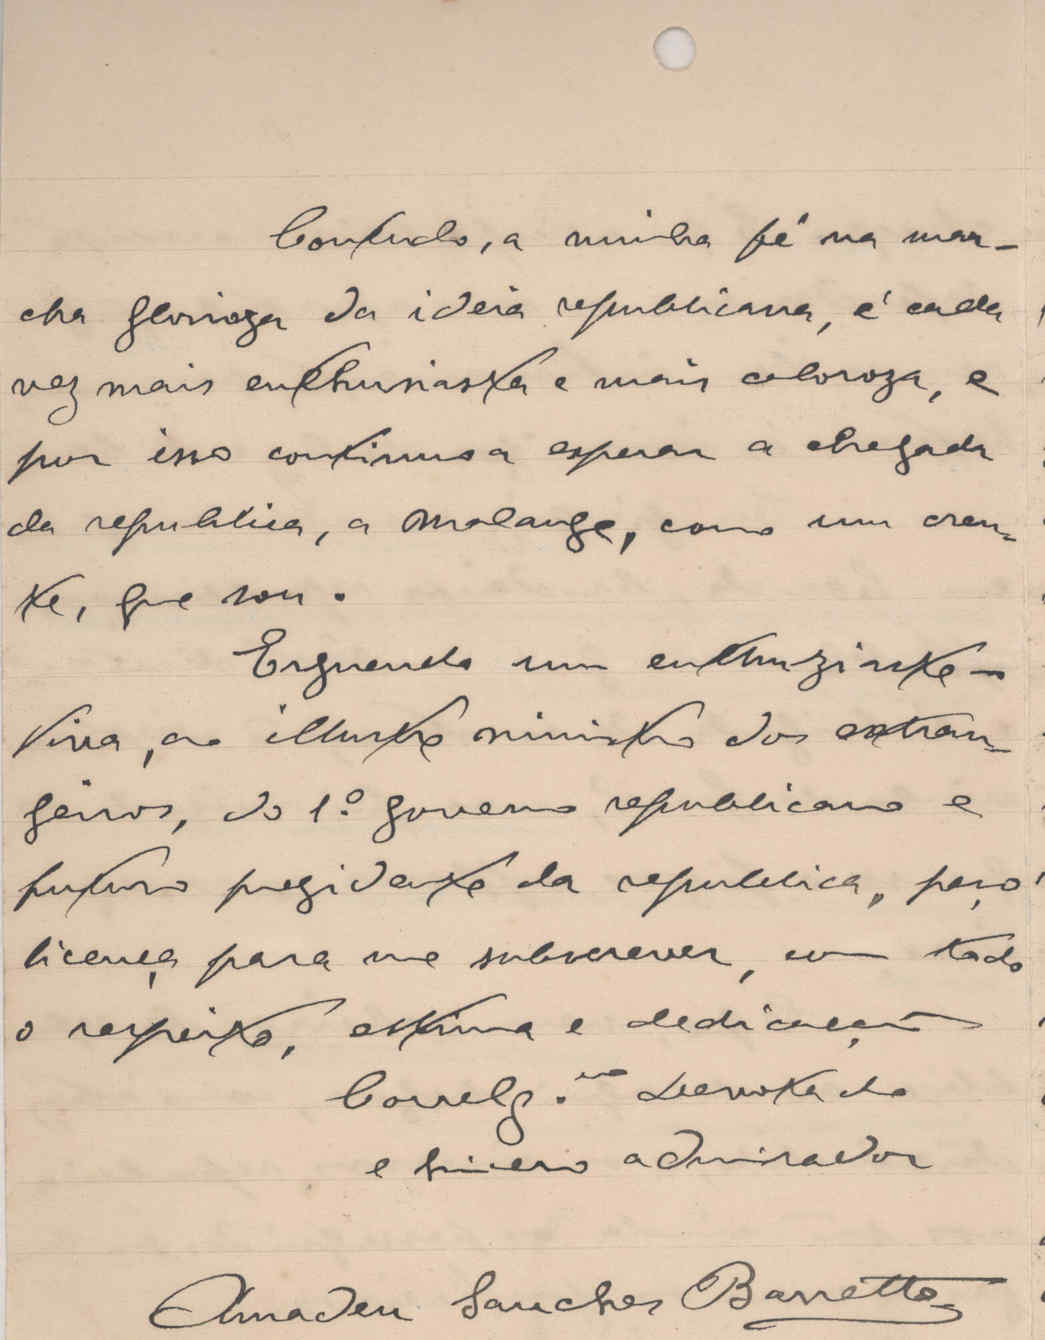 Contudo, a minha fé na mar-
cha glorioza da ideia republicana, é cada
vez mais enthusiasta e mais caloroza, e
por isso continuo a esperar a chegada
da republica, a Malange, como um cren-
te, que sou.
Erguendo um enthuziaste-
viva, ao illustre ministro dos extran-
geiros, do 1.º governo republicano e
futuro prezidente da republica, peço
licença para me subscrever, com todo
o respeito, estima e dedicação
Correlg.no devotado
e sincero admirador
Amadeu Sanches Barretto